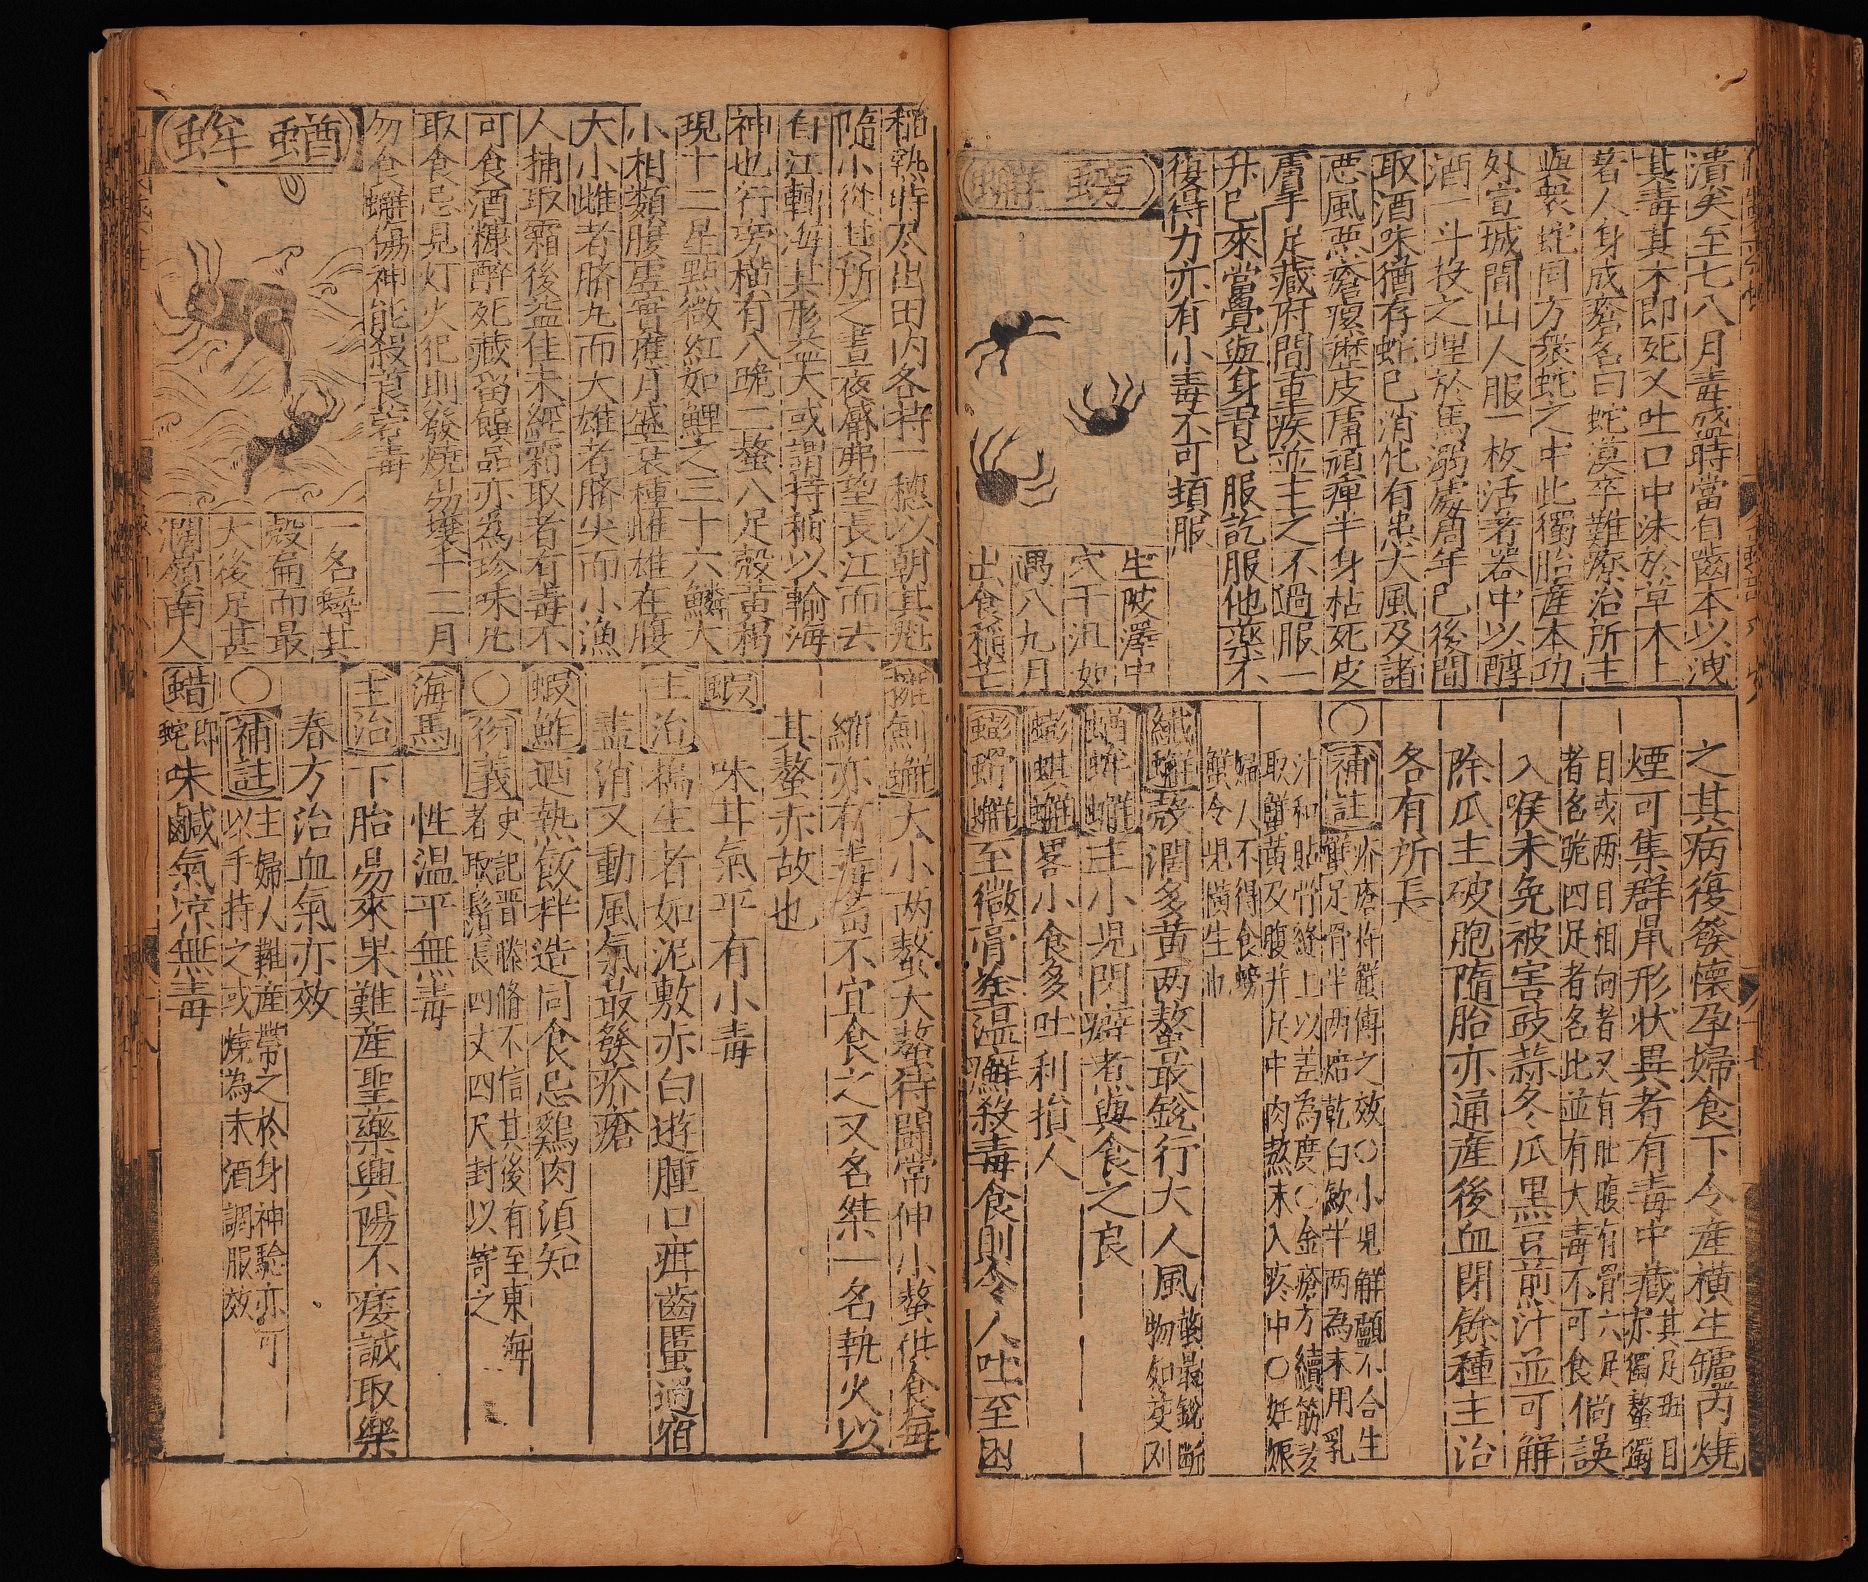 潰矣至七八月毒盛時當自齒本以洩
其毒其木即死又吐口中沫於草木上
著人身成瘡名曰蛇漠卒難療治所主
與衆蛇同方衆蛇之中此獨胎產本功
外宣城間山人服一枚活者器中以醇
酒一斗投之埋於馬溺處周年已後開
取酒味猶存蛇已消化有患大風及諸
惡風惡瘡瘰癧皮膚頑痺半身枯死皮
膚手足藏府間重疾並主之不過服一
升已來當覺與身習已服訖服他藥不
復得力亦有小毒不可頻服
蟹
生陂澤中
穴于沮如
遇八九月
出食稻芒
之其病復發懷孕婦食下令產橫生鑪芮燒
煙可集群鼠形状異者有毒中藏其足斑目
目或两目相向者又有肚腹有骨六足亦獨螯獨
者色班四足者名北並有大毒不可食倘誤
入喉未免被害豉蒜冬瓜黑豆煎汁並可解
除瓜主破胞隋胎亦通產後血閉餘種主治
各有所長
○補註
疥瘡杵蟹傅之效○小児解顱不合生
蟹足骨半两焙乾白歛半两為末用乳
汁和貼骨縫上以差為度○金瘡方續筋多
取蟹黃及腹并足中肉熬末入瘡中○妊娠
婦人不得食螃
蟹令児橫生也
蠘蟹殼潤多黃两螯最銳行大人風螯最銳断
物如芟刈
蝤蛑蟹主小児閃癖煮與食之良
蟛蜞蟹畧小食多吐利損人
蟛螖蟹至微膏塗濕癬殺毒食則令人吐至困
稻熟時尽出田内各持一穗以朝其魁
隨小從其所之晝夜觱沸望長江而去
自江轉海其形益大或謂持稻以輸海
神也行旁橫有八跪二螯八足殼黃褐
現十二星點微紅如鯉之三十六鱗大
小相類腹虛實應月盛衰種雌雄在腹
大小雌者臍丸而大雄者臍尖而小漁
人捕取霜後益佳未經霜取者有毒不
可食酒糠醉死藏留饌品亦為珍味凡
取食忌見灯火犯則發燒易壞十二月
勿食蟹傷神能殺莨菪毒
蝤蛑
一名蟳其
殼匾而最
大後足甚
濶嶺南人
擁劍蟹大小两螯大螯待鬬常伸小螯供食每
縮亦有海畨不宜食之又名桀一名執火以
其螯赤故也
蝦味甘氣平有小毒
主治搗生者如泥敷亦白遊腫口疳齒䘌過宿
盡消又動風氣最發疥瘡
蝦鮓廼熟飯拌造同食忌鷄肉須知
○衍義史記晋滕脩不信其後有至東海
者取鬚長四丈四尺封以寄之
海馬性温平無毒
主治下胎易來果難產聖藥興陽不痿誠取樂
春方治血氣亦效
○補註主婦人難産帶之於身神驗亦可
以手持之或燒為末酒調服效
䖳即蛇味鹹氣凉無毒